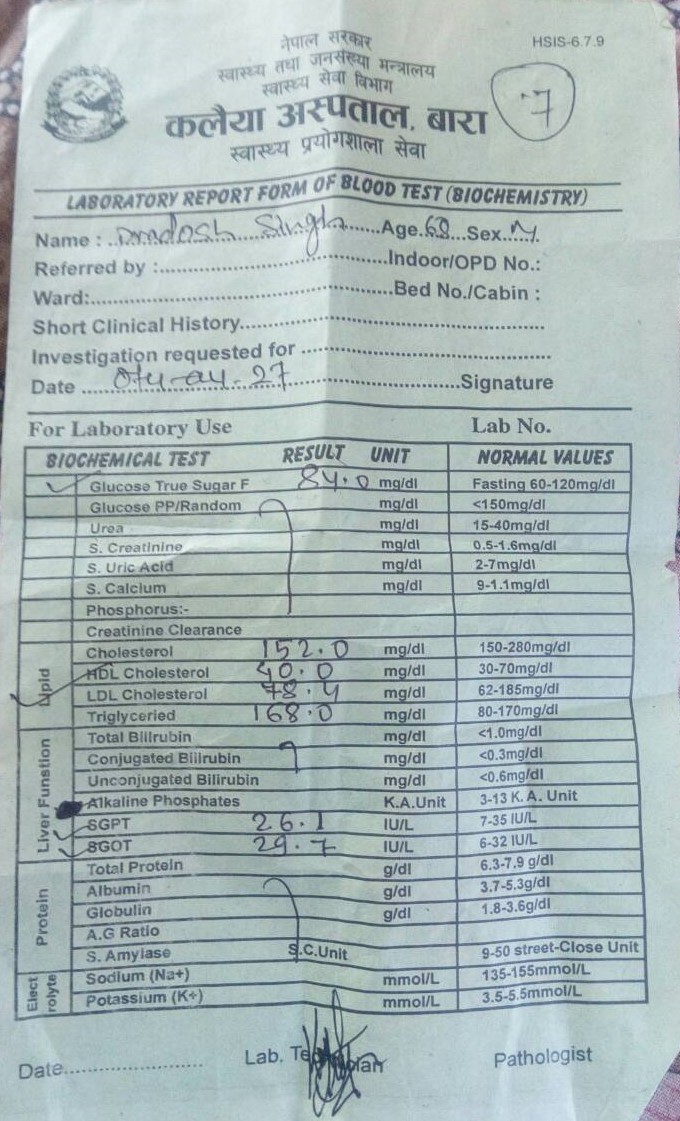 नेपाल सरकार
HSIS-6.7.9
स्वास्थ्य तथा जनसंख्या मन्त्रालय
स्वास्थ्य सेवा विभाग
कलैया अस्पताल, बारा
स्वास्थ्य प्रयोगशाला सेवा
LABORATORY REPORT FORM OF BLOOD TEST (BIOCHEMISTRY)
Name : Singh Age. 68 Sex M
Referred by : Indoor/OPD No.:
Ward: Bed No./Cabin :
Short Clinical History
Investigation requested for
Date 27 Signature
For Laboratory Use Lab No.
BIOCHEMICAL TEST RESULT UNIT NORMAL VALUES
Glucose True Sugar F 84.0 mg/dl Fasting 60-120mg/dl
Glucose PP/Random mg/dl <150mg/dl
Urea mg/dl 15-40mg/dl
S. Creatinine mg/dl 0.5-1.6mg/dl
S. Uric Acid mg/dl 2-7mg/dl
S. Calcium mg/dl 9-1.1mg/dl
Phosphorus:-
Creatinine Clearance
Lipid
Cholesterol 152.0 mg/dl 150-280mg/dl
HDL Cholesterol 40.0 mg/dl 30-70mg/dl
LDL Cholesterol 78.4 mg/dl 62-185mg/dl
Triglyceried 168.0 mg/dl 80-170mg/dl
Liver Funstion
Total Bilirubin mg/dl <1.0mg/dl
Conjugated Biilrubin mg/dl <0.3mg/dl
Unconjugated Bilirubin mg/dl <0.6mg/dl
Alkaline Phosphates K.A.Unit 3-13 K. A. Unit
SGPT 26.1 IU/L 7-35 IU/L
SGOT 29.7 IU/L 6-32 IU/L
Protein
Total Protein g/dl 6.3-7.9 g/dl
Albumin g/dl 3.7-5.3g/dl
Globulin g/dl 1.8-3.6g/dl
A.G Ratio
S. Amylase S.C.Unit 9-50 street-Close Unit
Elect rolyte
Sodium (Na+) mmol/L 135-155mmol/L
Potassium (K+) mmol/L 3.5-5.5mmol/L
Date Lab. Pathologist